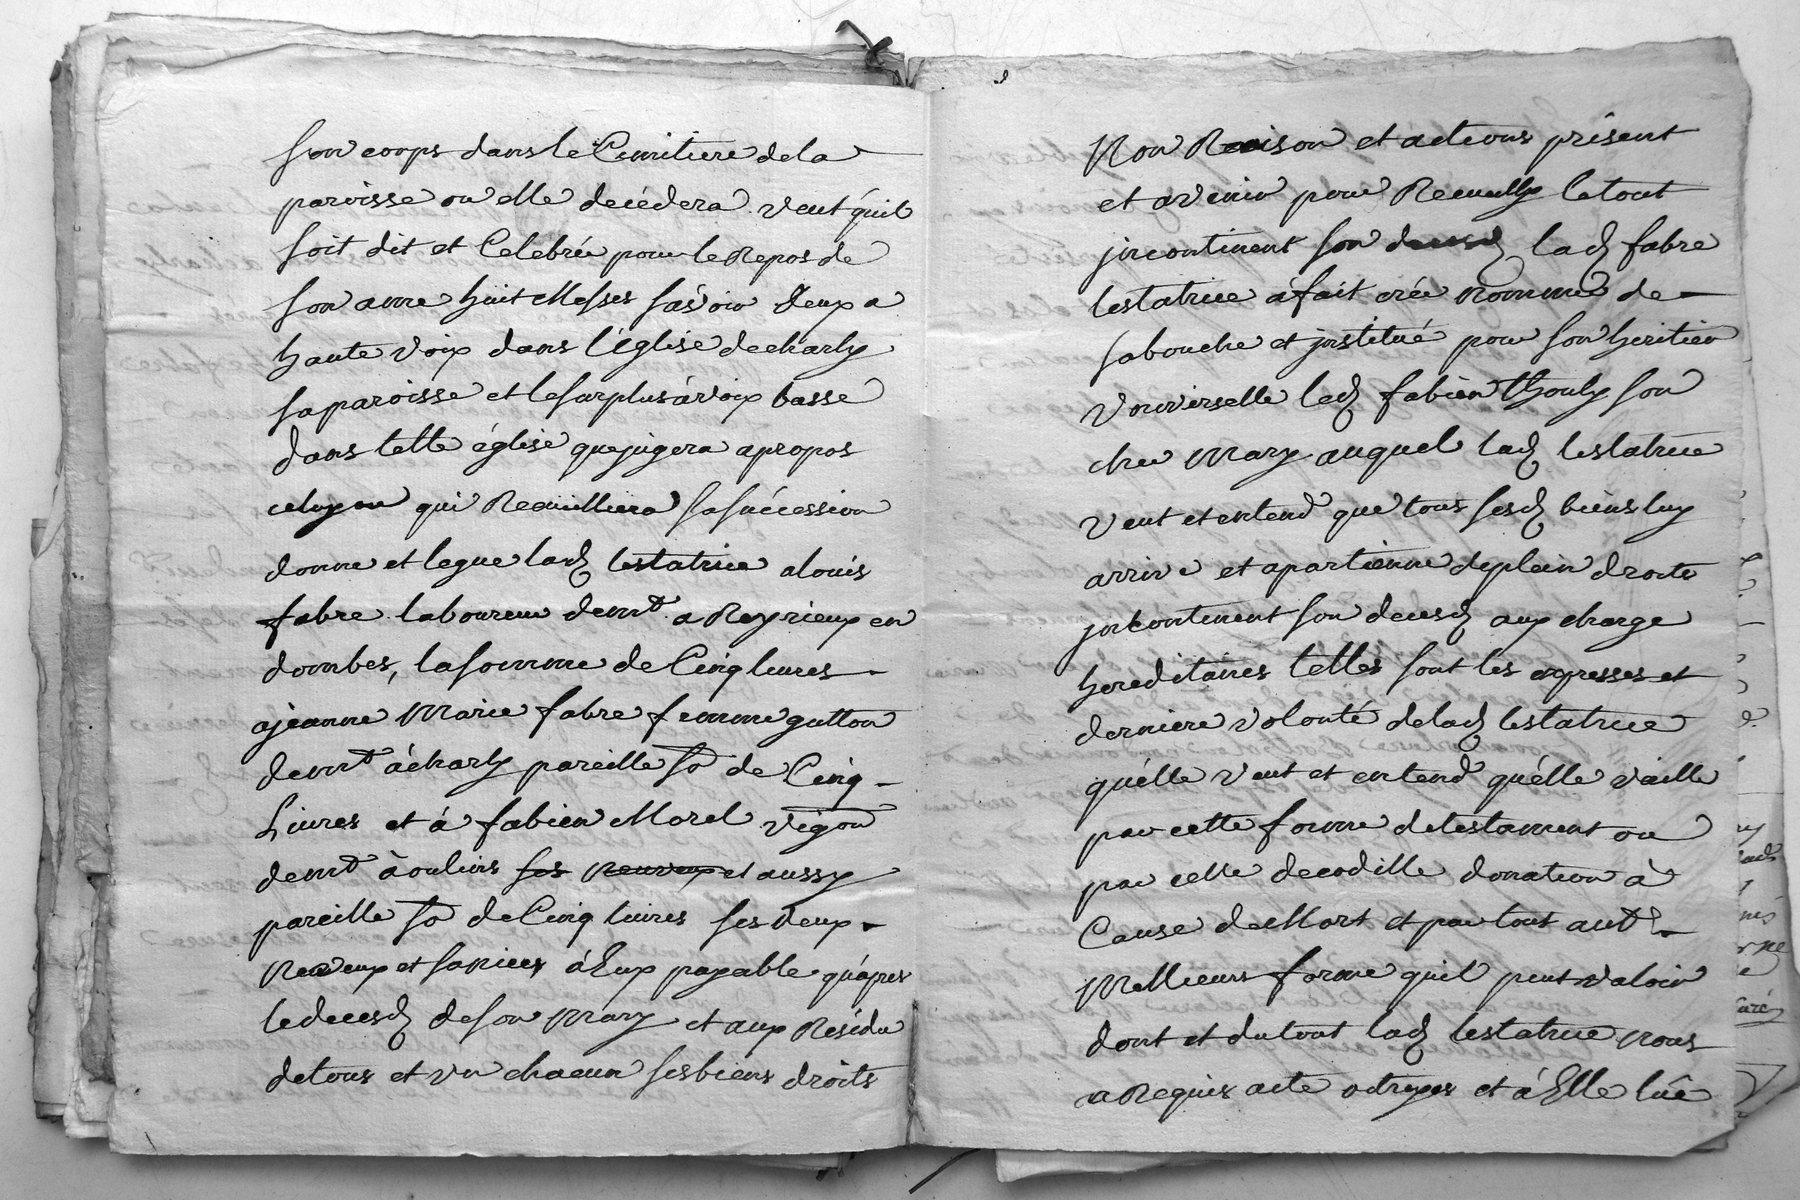 son corps dans le Cimitiere de la
paroisse ou elle decédera veut quil
soit dit et Celebrée pour le Repos de
son ame huit Messes sàvoir deux a
haute voix dans l'église de charly
sa paroisse et le surplus à voix basse
dans telle église que jugera apropos
celuy ou qui Recüilliera sa sucéssion
donne et legue lad testatrice a louis
fabre laboureur demt a Reyrieux en
dombes, la somme de Cinq livres
a jeanne Marie fabre femme gutton
demt à charly pareille so de Cinq
Livres et à fabien Morel vigon
demt à oulins ses Neuveux et aussy
pareille so de Cinq livres ses deux
Neuveux et sa niece à Eux payable qu'apres
le decesd de son Mary et aux Résidu
de tous et un chacun ses biens droits
Non Raison et actions présent
et avenir pour Recueilly le tout
jncontinent son decesd lad fabre
testatrice à fait créé nommé de
sa bouche et jnstitué pour son heritier
vouverselle led fabien thouly son
cher Mary auquel lad testatrice
veut et entend que tous sesd biens luy
arrive et apartienne de plein droits
jncontinent son decesd aux charge
hereditaires telles sont les expresses et
derniere volonté de lad testatrice
qu'élle veut et entend qu'élle vaille
par cette forme de testament ou
par celle de codille donation à
Cause de Mort et par tout autre
Mellieurs forme quil peut valoir
dont et du tout lad testatrice nous
a Requis acte octroyes et à Elle lüe